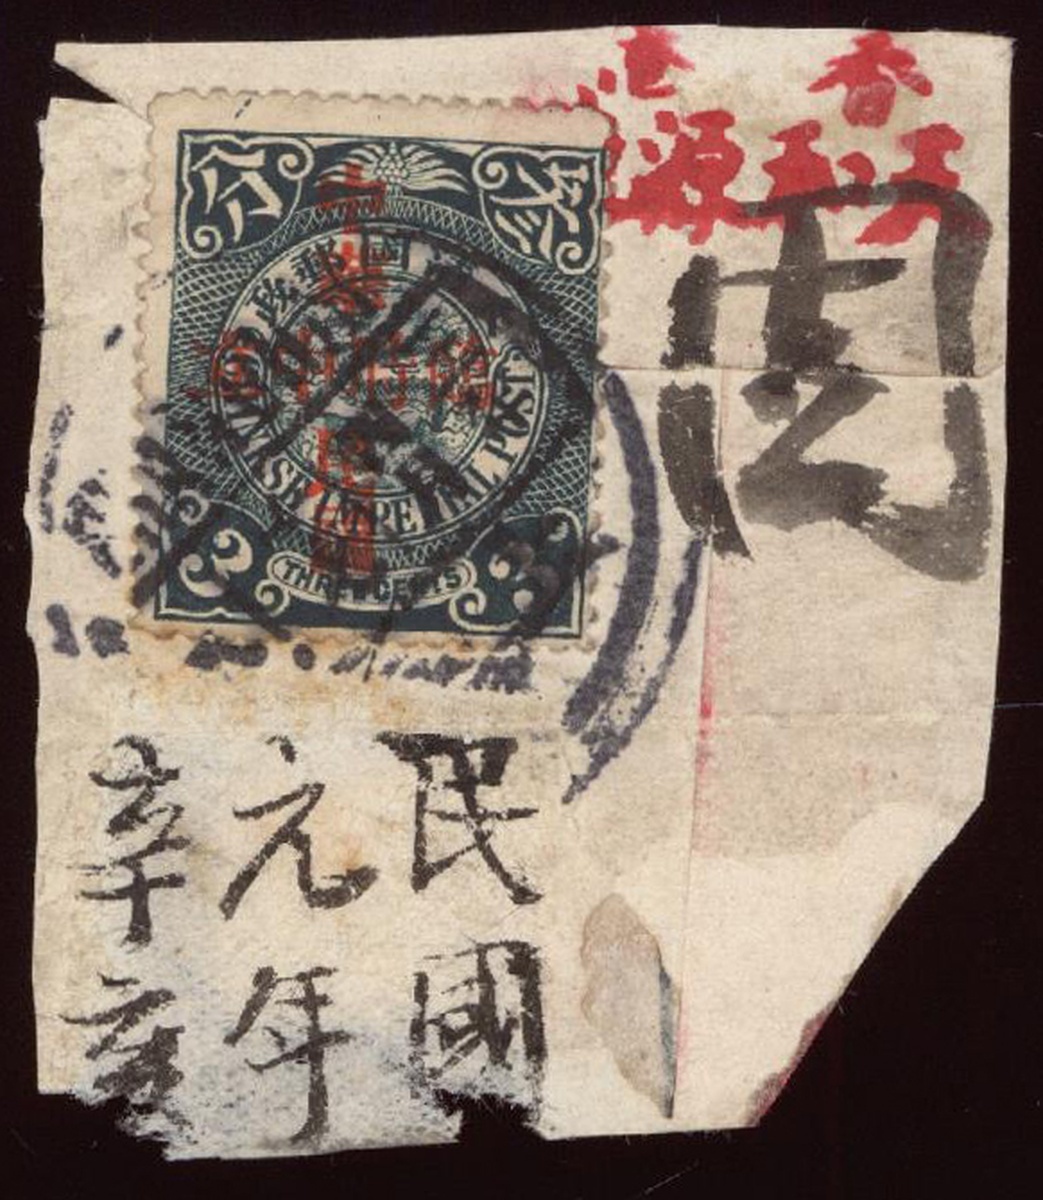 香港
周
叁分
大清國郵政
中華民國
臨時中立
CHINESE IMPERIAL POST
3 THREE CENTS 3
民國
元年
辛亥